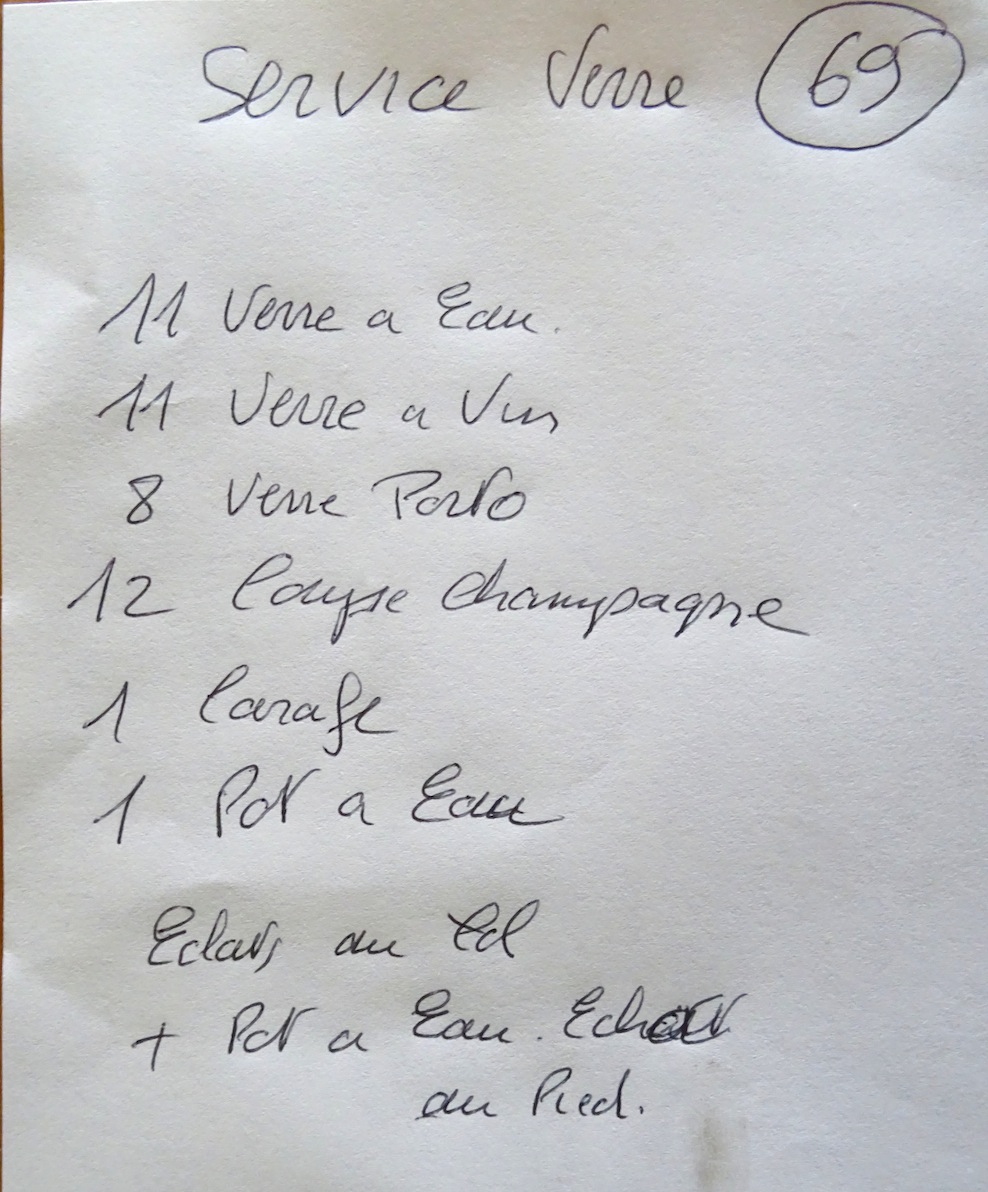 Service Verre 69
11 Verre a Eau.
11 Verre a Vin
8 Verre Porto
12 Coupe Champagne
1 Carafe
1 Pot a Eau
Eclats au Col
+ Pot a Eau. Eclat
au Pied.